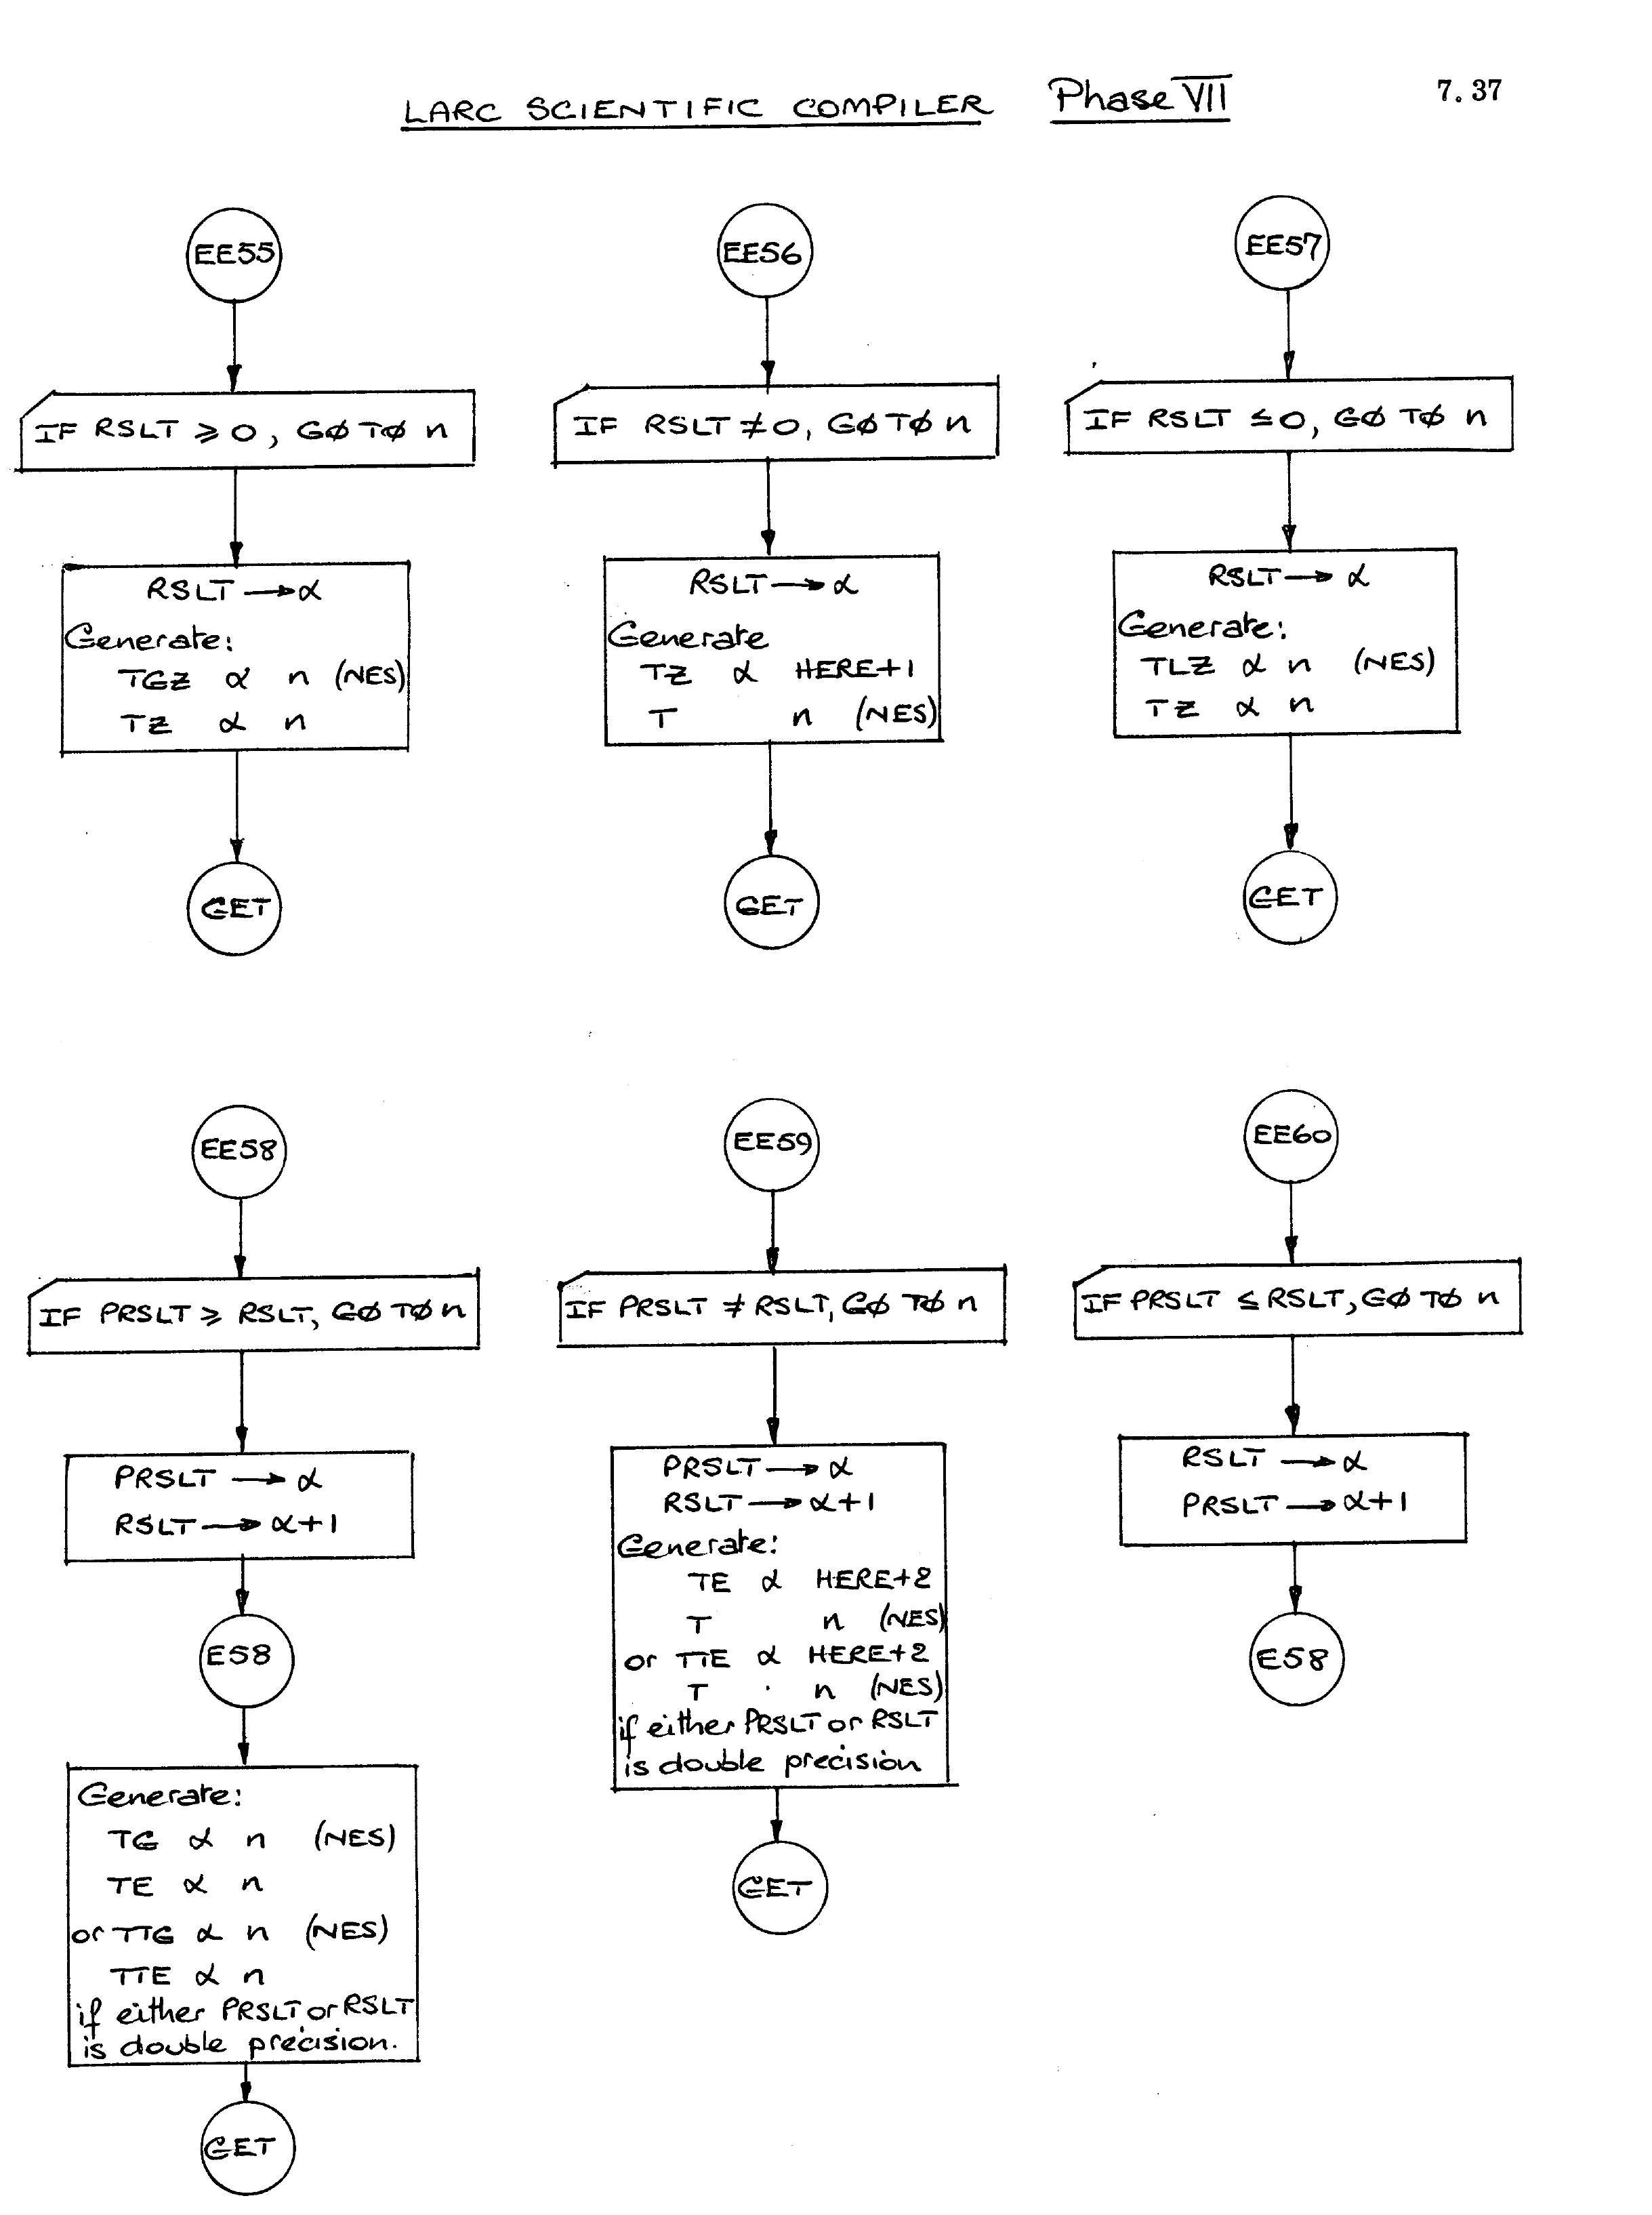 LARC SCIENTIFIC COMPILER Phase VII
7.37
EE55
IF RSLT ≥ 0, GØ TØ n
RSLT → α
Generate:
TGZ α n (NES)
TZ α n
GET
EE56
IF RSLT ≠ 0, GØ TØ n
RSLT → α
Generate
TZ α HERE+1
T n (NES)
GET
EE57
IF RSLT ≤ 0, GØ TØ n
RSLT → α
Generate:
TLZ α n (NES)
TZ α n
GET
EE58
IF PRSLT ≥ RSLT, GØ TØ n
PRSLT → α
RSLT → α+1
E58
Generate:
TG α n (NES)
TE α n
or TTG α n (NES)
TTE α n
if either PRSLT or RSLT
is double precision.
GET
EE59
IF PRSLT ≠ RSLT, GØ TØ n
PRSLT → α
RSLT → α+1
Generate:
TE α HERE+2
T n (NES)
or TTE α HERE+2
T n (NES)
if either PRSLT or RSLT
is double precision
GET
EE60
IF PRSLT ≤ RSLT, GØ TØ n
RSLT → α
PRSLT → α+1
E58